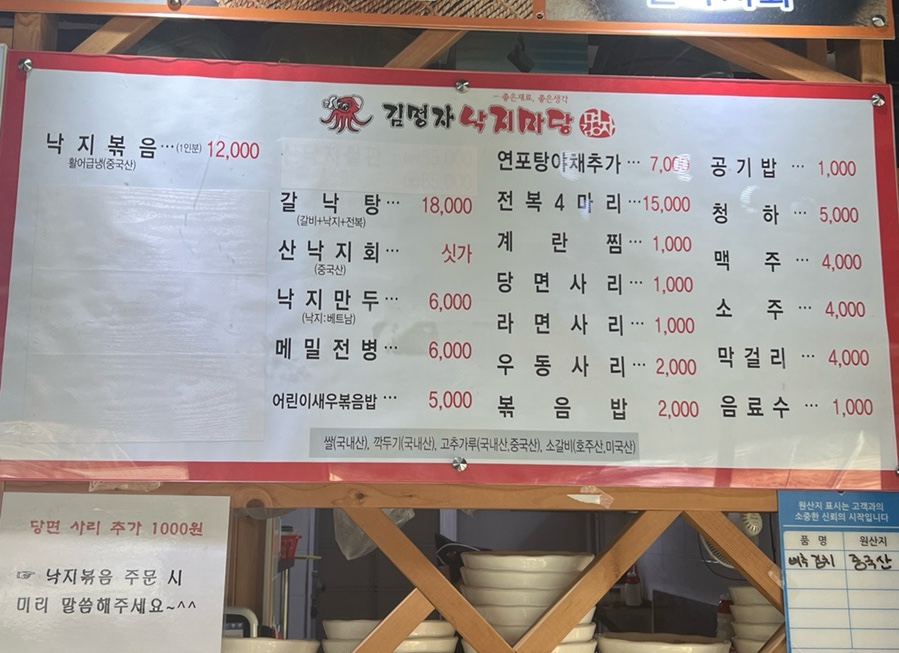 - 좋은재료, 좋은생각
김명자 낙지마당 명자
낙지볶음 ··· (1인분) 12,000
활어급냉(중국산)
갈낙탕 ··· 18,000
(갈비+낙지+전복)
산낙지회 ··· 싯가
(중국산)
낙지만두 ··· 6,000
(낙지:베트남)
메밀전병 ··· 6,000
어린이새우볶음밥 ··· 5,000
연포탕야채추가 ··· 7,000
전복4마리 ··· 15,000
계란찜 ··· 1,000
당면사리 ··· 1,000
라면사리 ··· 1,000
우동사리 ··· 2,000
볶음밥 2,000
공기밥 ··· 1,000
청하 ··· 5,000
맥주 ··· 4,000
소주 ··· 4,000
막걸리 ··· 4,000
음료수 ··· 1,000
쌀(국내산), 깍두기(국내산), 고추가루(국내산,중국산), 소갈비(호주산,미국산)
당면 사리 추가 1000원
☞ 낙지볶음 주문 시
미리 말씀해주세요~^^
원산지 표시는 고객과의
소중한 신뢰의 시작입니다
품 명 원산지
배추김치 중국산